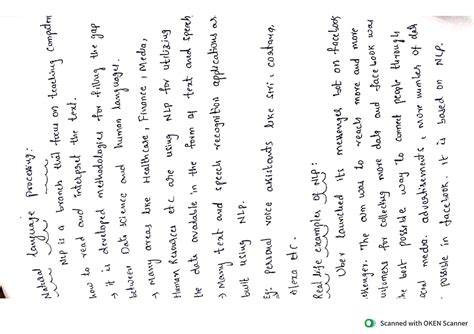 Natural language processing:
NLP is a branch that focus on teaching computer
how to read and interpret the text.
→ it is developed methodologies for filling the gap
between Data science and human languages.
→ Many areas like Healthcare, Finance, Media,
Human Resources etc are using NLP for utilizing
the data available in the form of text and speech
→ Many text and speech recognition applications are
built using NLP.
Eg: Personal voice assistants like siri, cortana,
Alexa etc.
Real life examples of NLP:
Uber launched its messenger bot on facebook
messenger. The aim was to reach more and more
customers for collecting more data and facebook was
the best possible way to connect people through
social media. advertisements, more number of
possible in facebook. it is based on NLP.
Scanned with OKEN Scanner